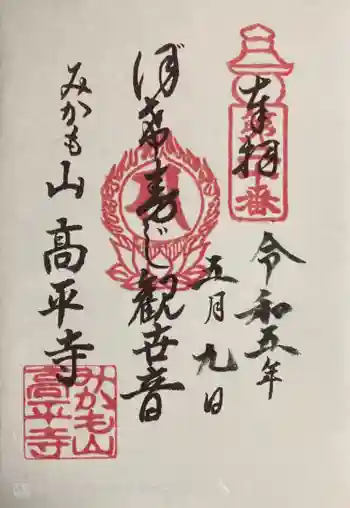 奉拝
令和五年
五月九日
ぼ希寿じ観世音
みかも山
高平寺
みかも山
高平寺